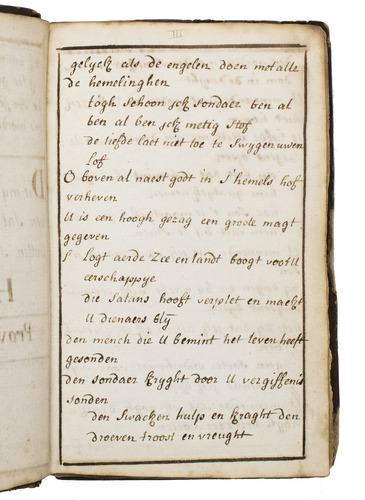 III
gelyck als de engelen doen met alle
de hemelinghen
togh schoon ick sondaer ben al
ben al ben ick metig stof
de liefde laet niet toe te swygen uwen
Lof
O boven al naest godt in s'hemels hof
verheven
U is een hoogh gezag een groote magt
gegeven
logt aerde Zee en landt boogt voor U
eerschappye
die Satans hooft verplet en maekt
U dienaers bly
den mench die U bemint het leven heeft
gesonden
den sondaer kryght door U vergiffenis
sonden
den swacken hulp en kraght den
droeven troost en vreught